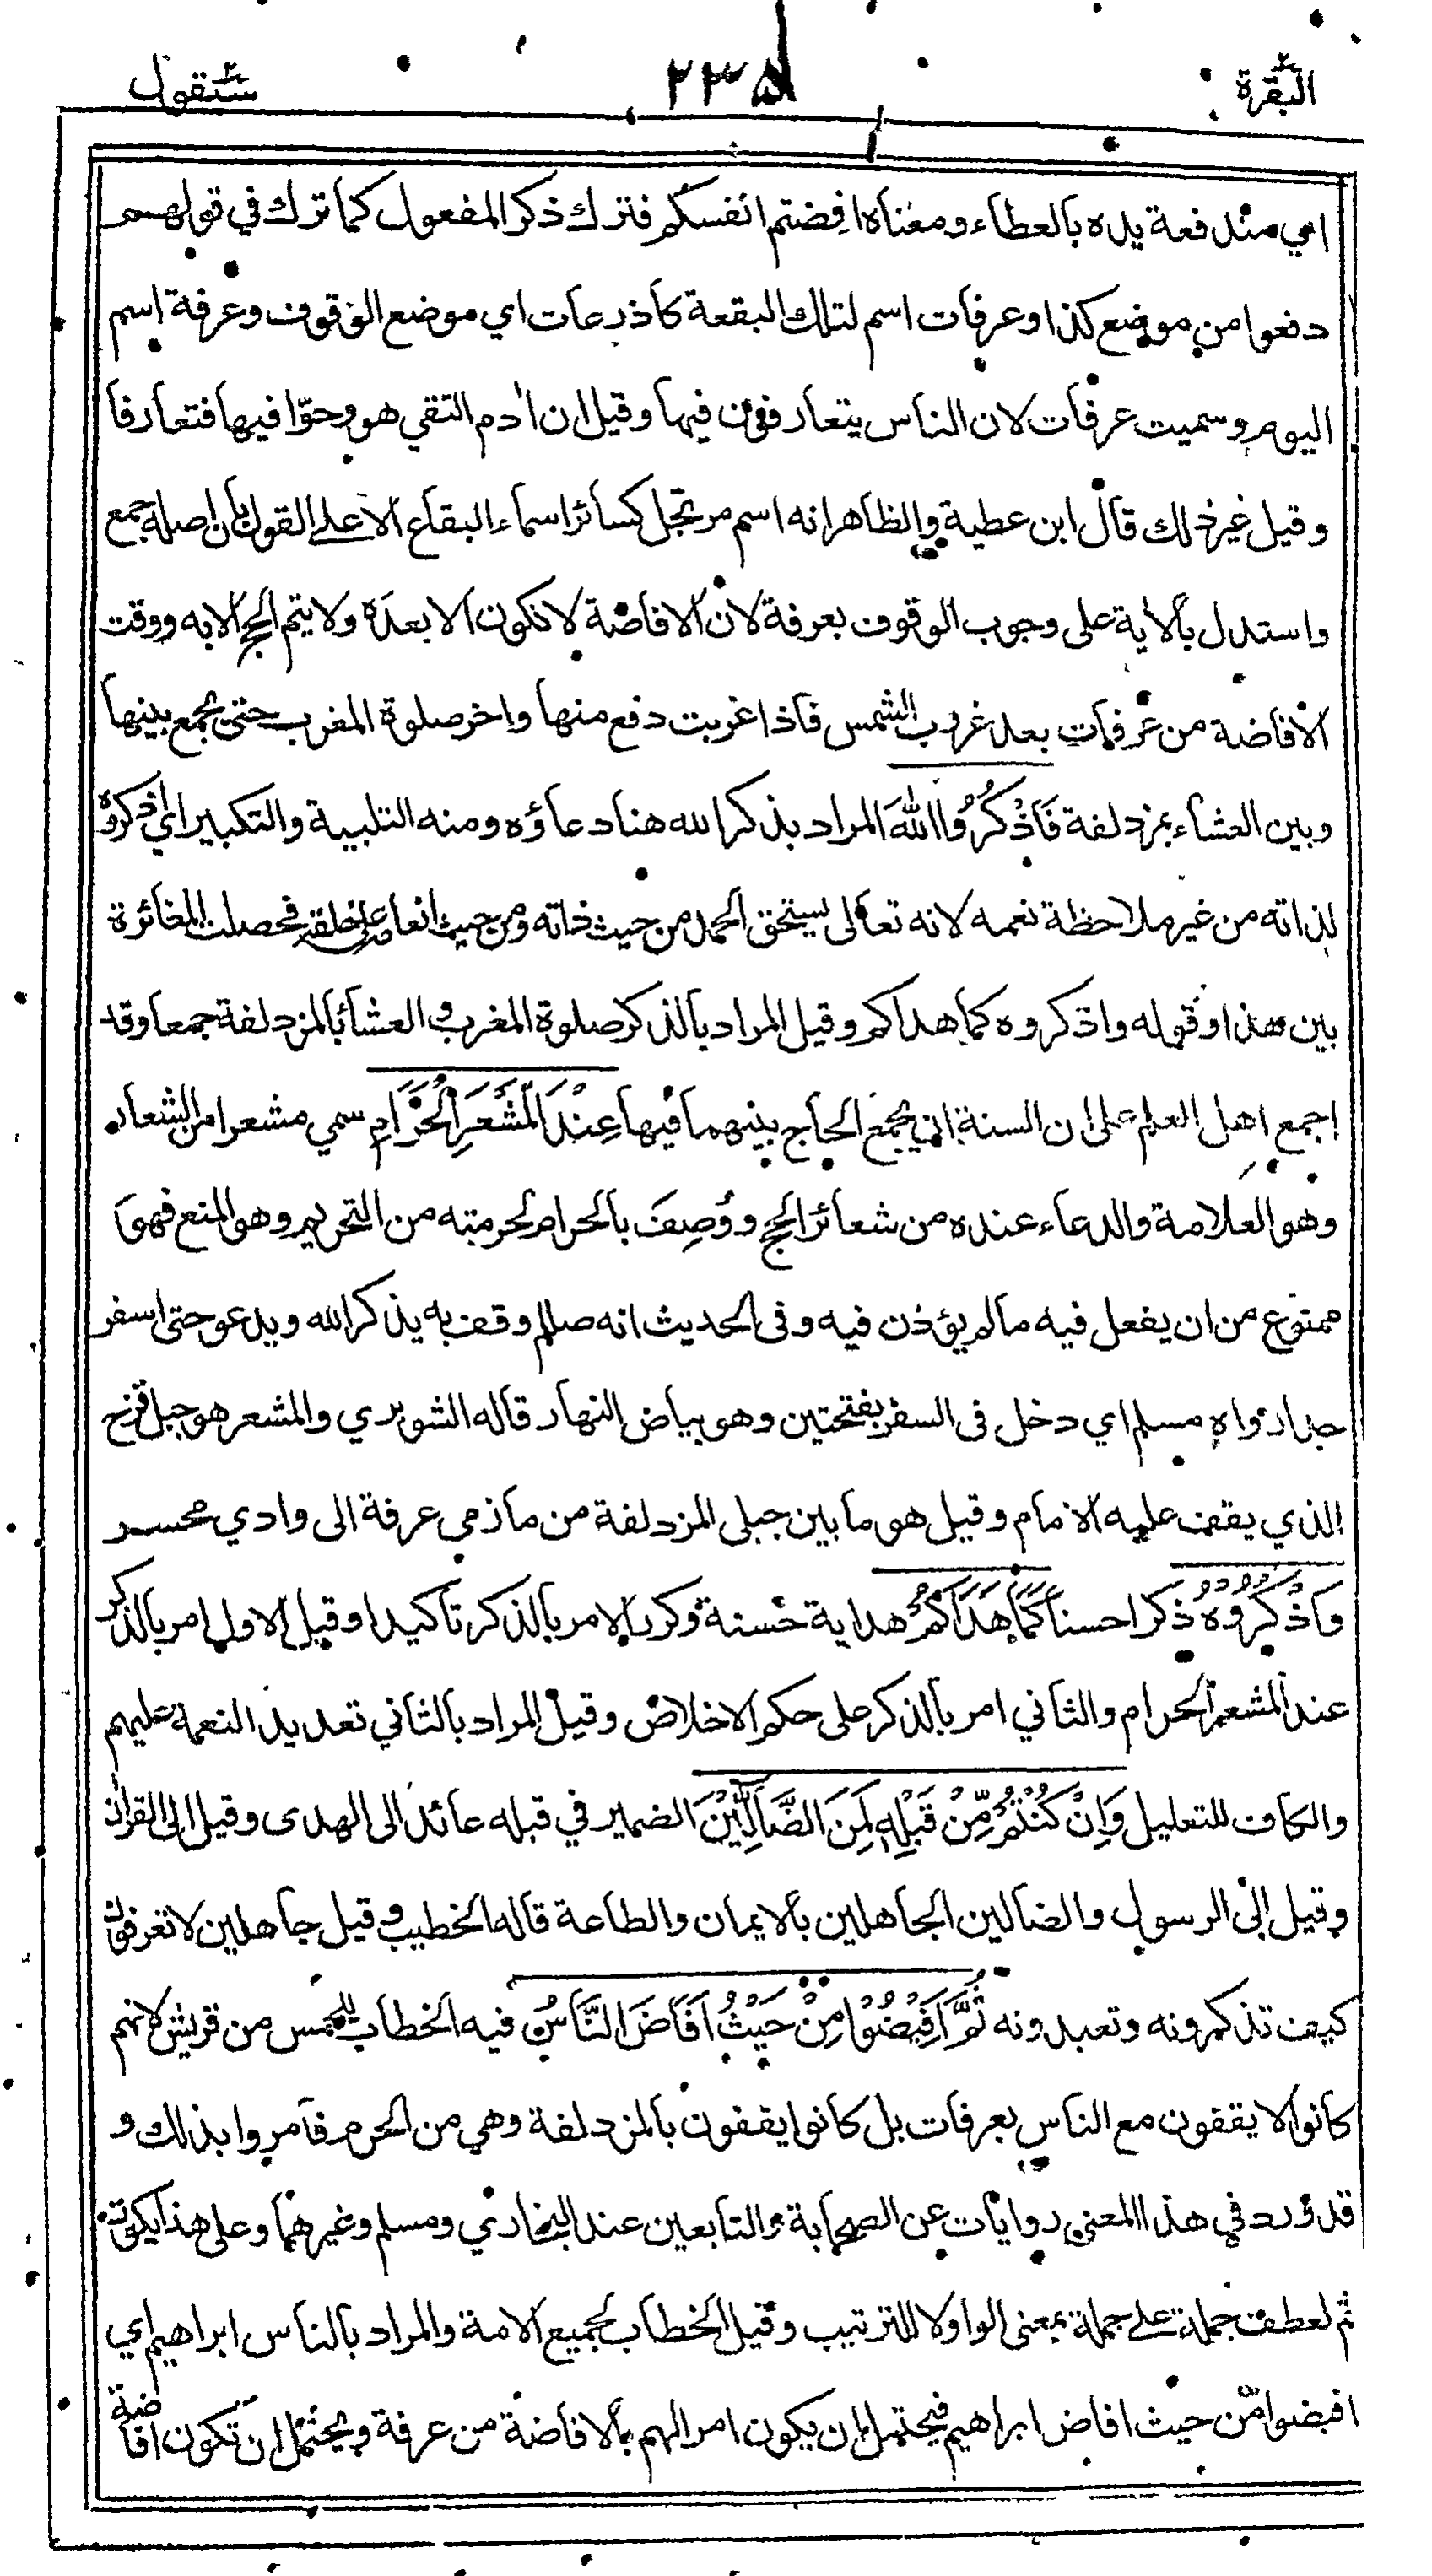 البقرة ٢ ٢٣٥ سَيَقُول ٢
اي مندفعة يده بالعطاء ومعناه افضتم انفسكم فترك ذكر المفعول كما ترك في قولهم
دفعوا من موضع كذا وعرفات اسم لتلك البقعة كأذرعات اي موضع الوقوف وعرفة اسم
اليوم وسميت عرفات لان الناس يتعارفون فيها وقيل ان اٰدم التقي هو وحوّا فيها فتعارفا
وقيل غير ذلك قال ابن عطية والظاهر انه اسم مرتجل كسائر اسماء البقاع الا على القول بان اصله جمع
واستدل بالاية على وجوب الوقوف بعرفة لان الافاضة لا تكون الا بعده ولا يتم الحج الا به ووقت
الافاضة من عرفات بعد غروب الشمس فاذا غربت دفع منها واخر صلوة المغرب حتى يجمع بينها
وبين العشاء بمزدلفة فَاذْكُرُوا اللّٰهَ المراد بذكر الله هنا دعاؤه ومنه التلبية والتكبير اي اذكروه
لذاته من غير ملاحظة نعمه لانه تعالى يستحق الحمد من حيث ذاته ومن حيث انعامه على خلقه فحصلت المغائرة
بين هذا وقوله واذكروه كما هداكم وقيل المراد بالذكر صلوة المغرب والعشا بالمزدلفة جمعا وقد
اجمع اهل العلم على ان السنة ان يجمع الحاج بينهما فيها عِنْدَ الْمَشْعَرِ الْحَرَامِ سمي مشعرا من الشعار
وهو العلامة والدعاء عنده من شعائر الحج ووُصِفَ بالحرام لحرمته من التحريم وهو المنع فهو
ممنوع من ان يفعل فيه ما لم يؤذن فيه وفى الحديث انه صللم وقف به يذكر الله ويدعو حتى اسفر
جدا رواه مسلم اي دخل فى السفر بفتحتين وهو بياض النهار قاله الشوبري والمشعر هو جبل قزح
الذي يقف عليه الامام وقيل هو ما بين جبلى المزدلفة من مازمي عرفة الى وادي محسر
وَاذْكُرُوْهُ ذكرا حسنا كَمَا هَدَاكُمْ هداية حسنة وكرر الامر بالذكر تاكيدا وقيل الاول امر بالذكر
عند المشعر الحرام والثاني امر بالذكر على حكم الاخلاص وقيل المراد بالثاني تعديد النعمة عليهم
والكاف للتعليل وَاِنْ كُنْتُمْ مِّنْ قَبْلِهٖ لَمِنَ الضَّآلِّيْنَ الضمير في قبله عائد الى الهدى وقيل الى القران
وقيل الى الرسول والضالين الجاهلين بالايمان والطاعة قاله الخطيب وقيل جاهلين لا تعرفون
كيف تذكرونه وتعبدونه ثُمَّ اَفِيْضُوْا مِنْ حَيْثُ اَفَاضَ النَّاسُ فيه الخطاب للحمس من قريش لانهم
كانوا لا يقفون مع الناس بعرفات بل كانوا يقفون بالمزدلفة وهي من الحرم فامروا بذلك و
قد ورد في هذا المعنى روايات عن الصحابة والتابعين عند البخاري ومسلم وغيرهما وعلى هذا يكون
ثم لعطف جملة على جملة بمعنى الواو لا للترتيب وقيل الخطاب لجميع الامة والمراد بالناس ابراهيم اي
افيضوا من حيث افاض ابراهيم فيحتمل ان يكون امرا لهم بالافاضة من عرفة ويحتمل ان تكون افاضة